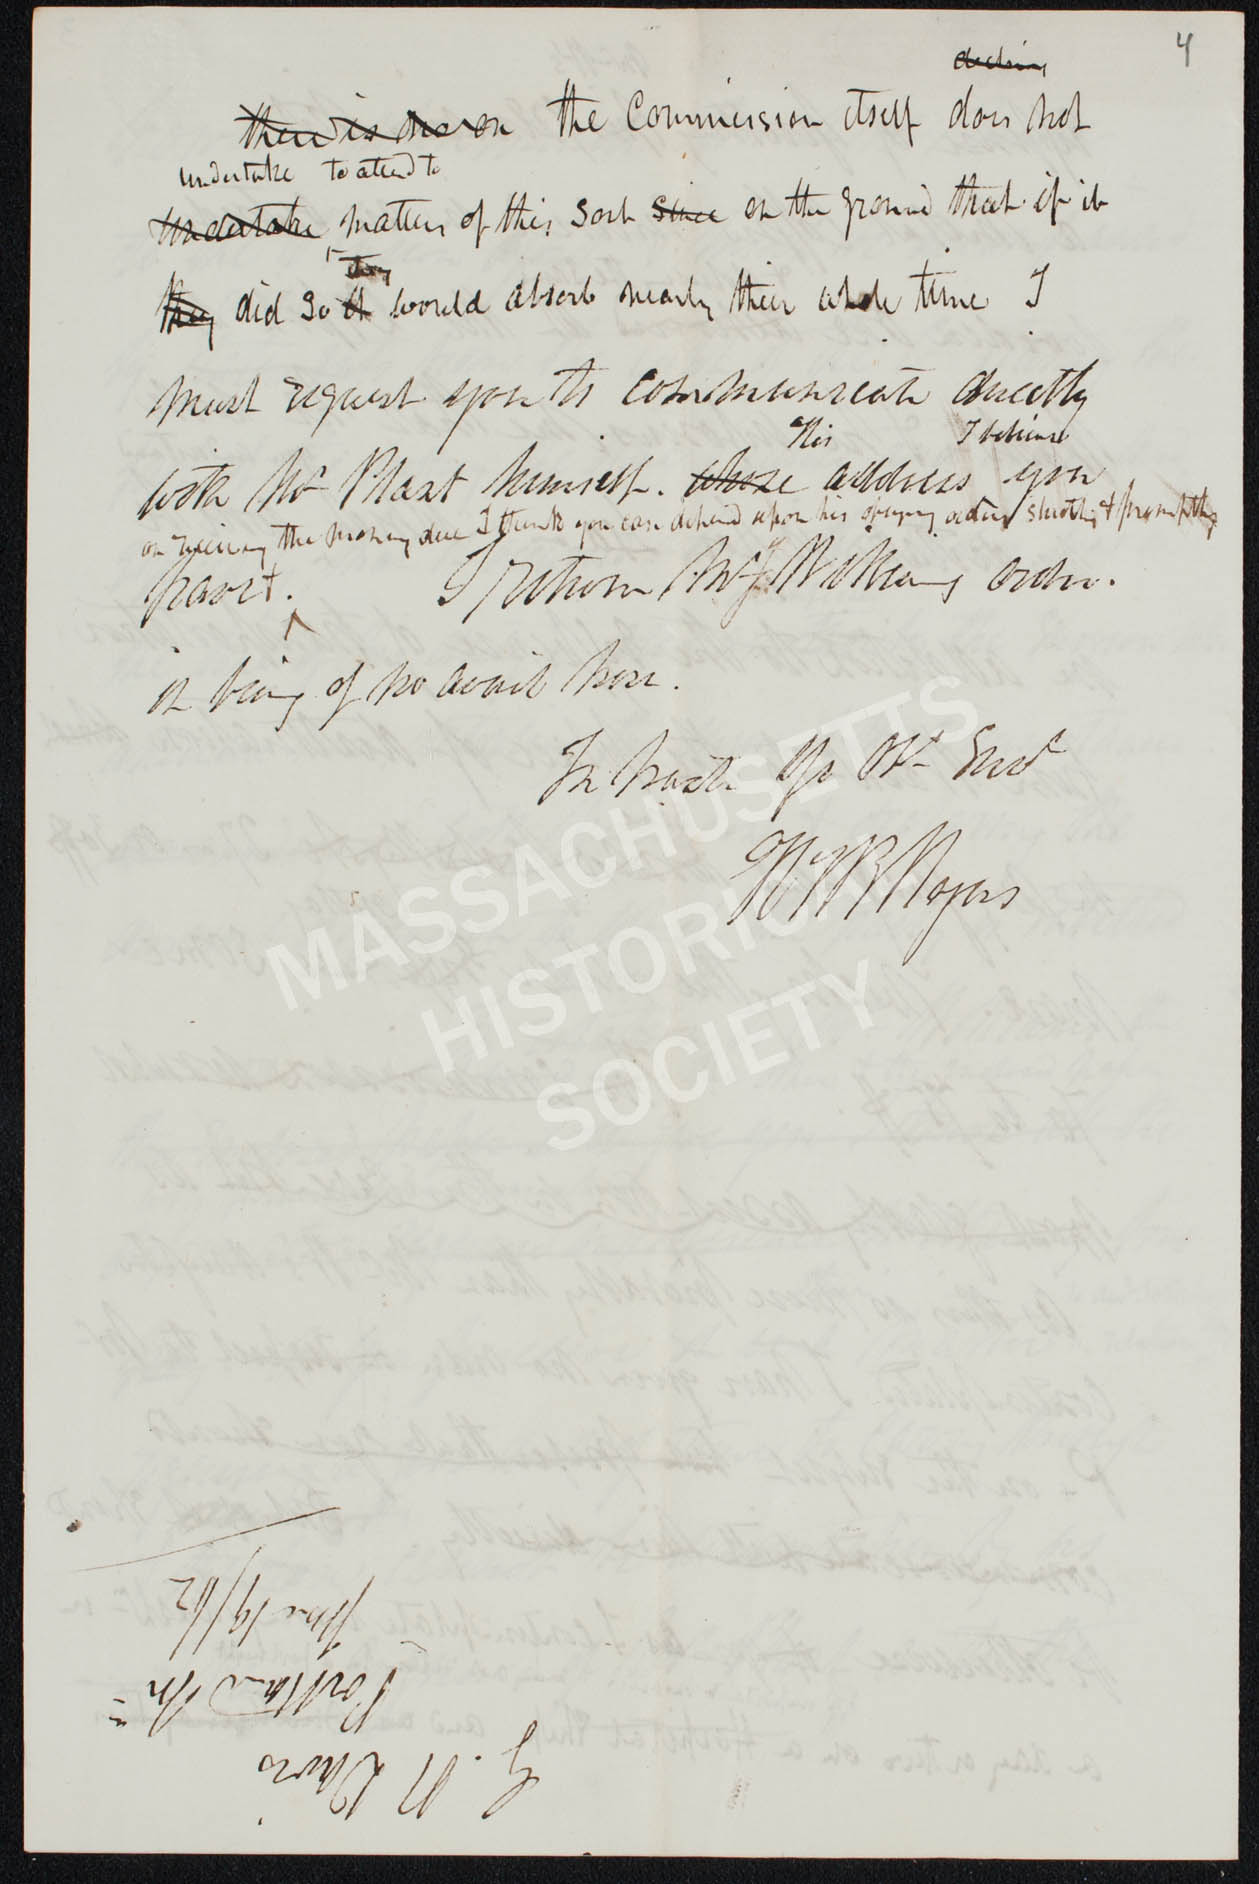 4
declining
there is no on the Commission itself does not
undertake to attend to
undertake matters of this sort since on the ground that if it
they
they did so it would absorb nearly their whole time I
must request you to communicate directly
His I believe
with Mr Plant himself. whose address you
on receiving the money due I think you can depend upon his obeying orders strictly & promptly
have.
I return Mr order.
it being of no avail here.
In haste Yr Obt Servt
Wm B Rogers
MASSACHUSETTS
HISTORICAL
SOCIETY
G. N Davis
Portland Me
June 19/62